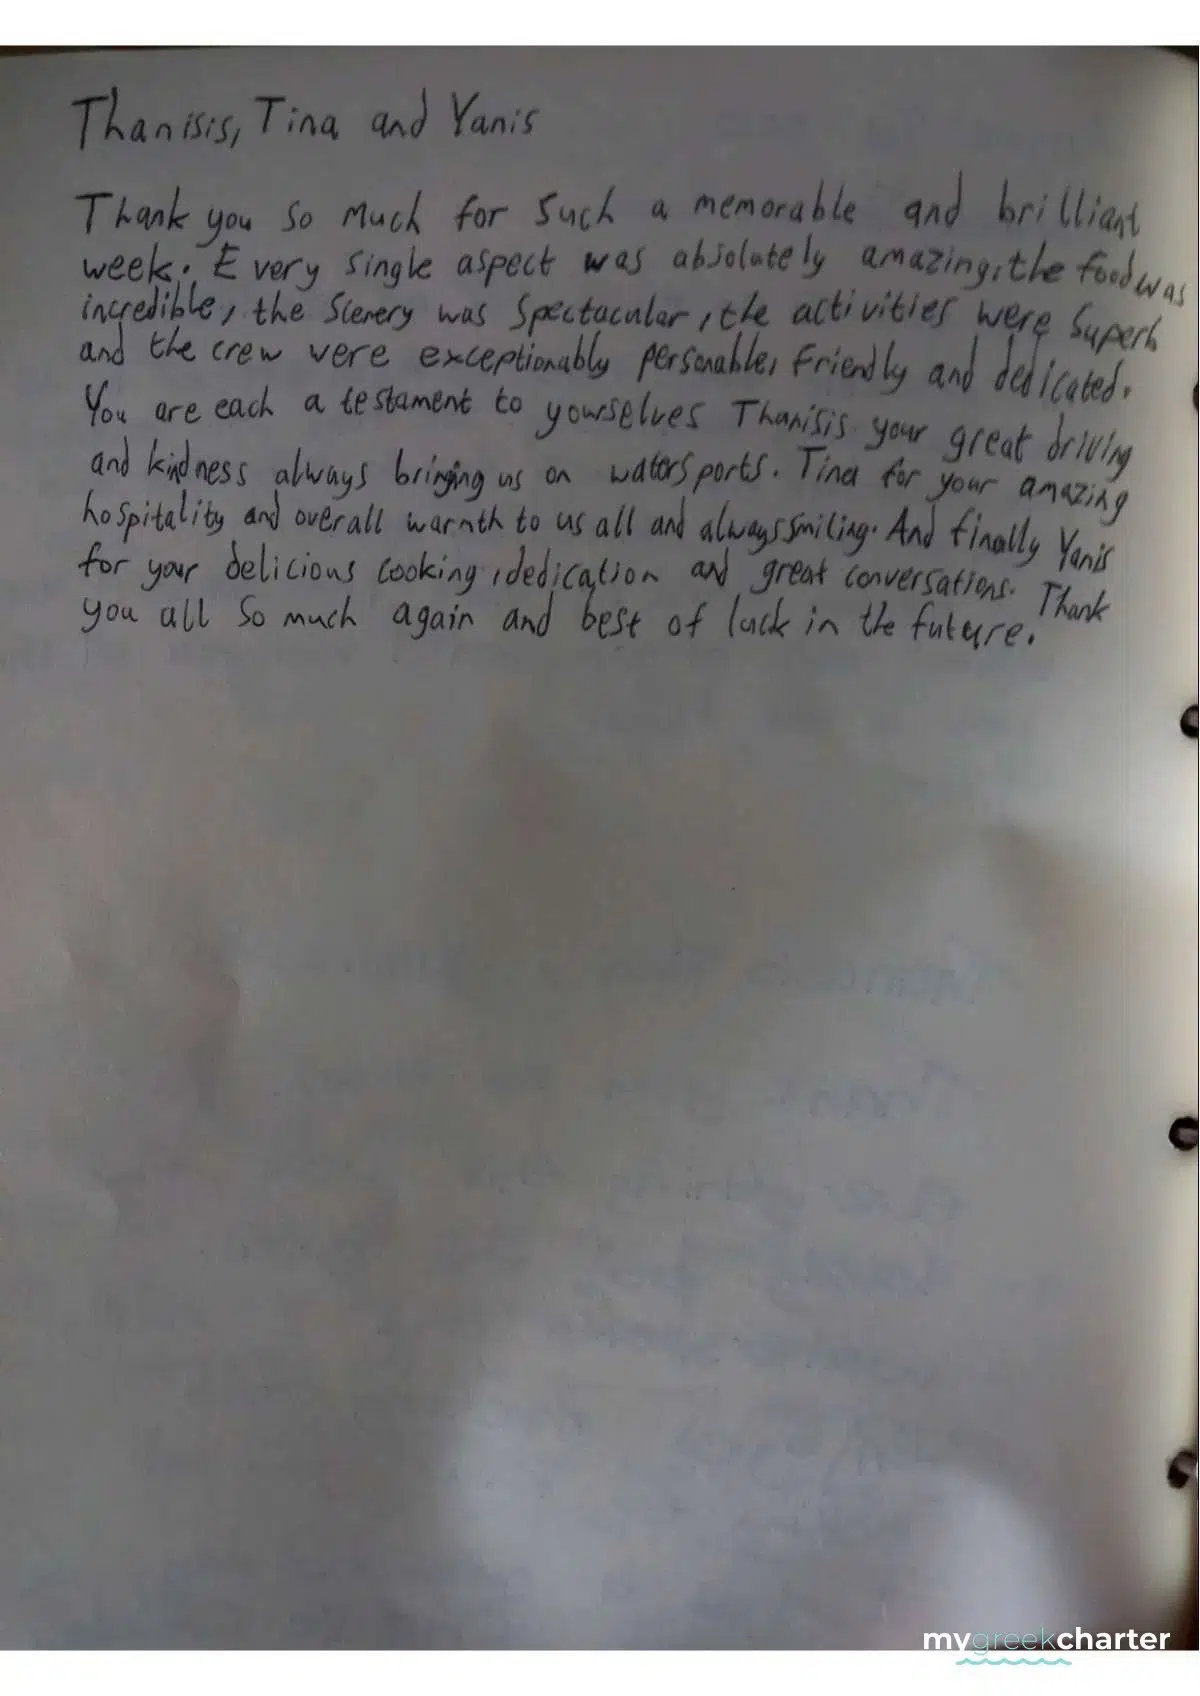 Thanisis, Tina and Yanis
Thank you so much for such a memorable and brilliant
week. Every single aspect was absolutely amazing, the food was
incredible, the Scenery was Spectacular, the activities were Superb
and the crew were exceptionably personable, Friendly and dedicated.
You are each a testament to yourselves Thanisis your great driving
and kindness always bringing us on watersports. Tina for your amazing
hospitality and overall warmth to us all and always smiling. And finally Yanis
for your delicious cooking, dedication and great conversations. Thank
you all so much again and best of luck in the future.
mygreekcharter